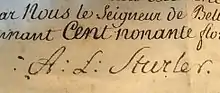 ar Nous le Seigneur de Bel
nnant Cent nonante flo
A: L: Sturler.